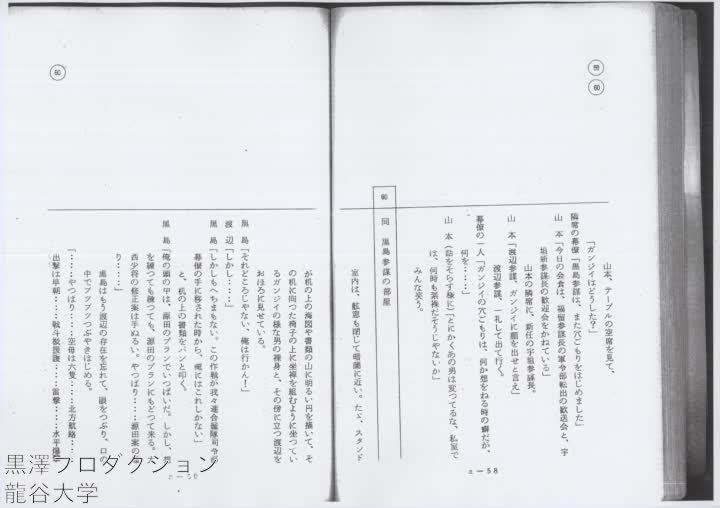 59
60
山本、テーブルの空席を見て、
「ガンジイはどうした？」
隣席の幕僚「黒島参謀は、また穴ごもりをはじめました」
山　本「今日の会食は、福留参謀長の軍令部転出の歓送会と、宇
垣新参謀長の歓迎会をかねている」
山本の隣席に、新任の宇垣参謀長。
山　本「渡辺参謀、ガンジイに顔を出せと言え」
渡辺参謀、一礼して出て行く。
幕僚の一人「ガンジイの穴ごもりは、何か想をねる時の癖だが、
何を‥‥」
山　本（話をそらす様に）「とにかくあの男は変つてるな、私室で
は、何時も素裸だそうじやないか」
みんな笑う。
60　同　黒島参謀の部屋
室内は、舷窓も閉じて暗闇に近い。たゞ、スタンド
ニー58
60
が机の上の海図や書類の山に明るい円を描いて、そ
の机に向つた椅子の上に坐禅を組むように坐つてい
るガンジイの様な男の裸身と、その傍に立つ渡辺を
おぼろに見せている。
黒　島「それどころじやない、俺は行かん！」
渡　辺「しかし‥‥」
黒　島「しかしもへちまもない。この作戦が我々連合艦隊司令部
幕僚の手に移された時から、俺にはこれしかない」
と、机の上の書類をパンと叩く。
黒　島「俺の頭の中は、源田のプランでいつぱいだ。しかし、想
を練つても練つても、源田のプランにもどつて来る。大
西少将の修正案は手ぬるい。やつぱり‥‥源田案の通
り‥‥」
黒島はもう渡辺の存在を忘れて、眼をつぶり、口の
中でブツブツつぶやきはじめる。
「‥‥やつぱり‥‥空母は六隻‥‥北方航路‥‥
出撃は早朝‥‥戦斗機援護‥‥雷撃‥‥水平爆撃
黒澤プロダクション
龍谷大学